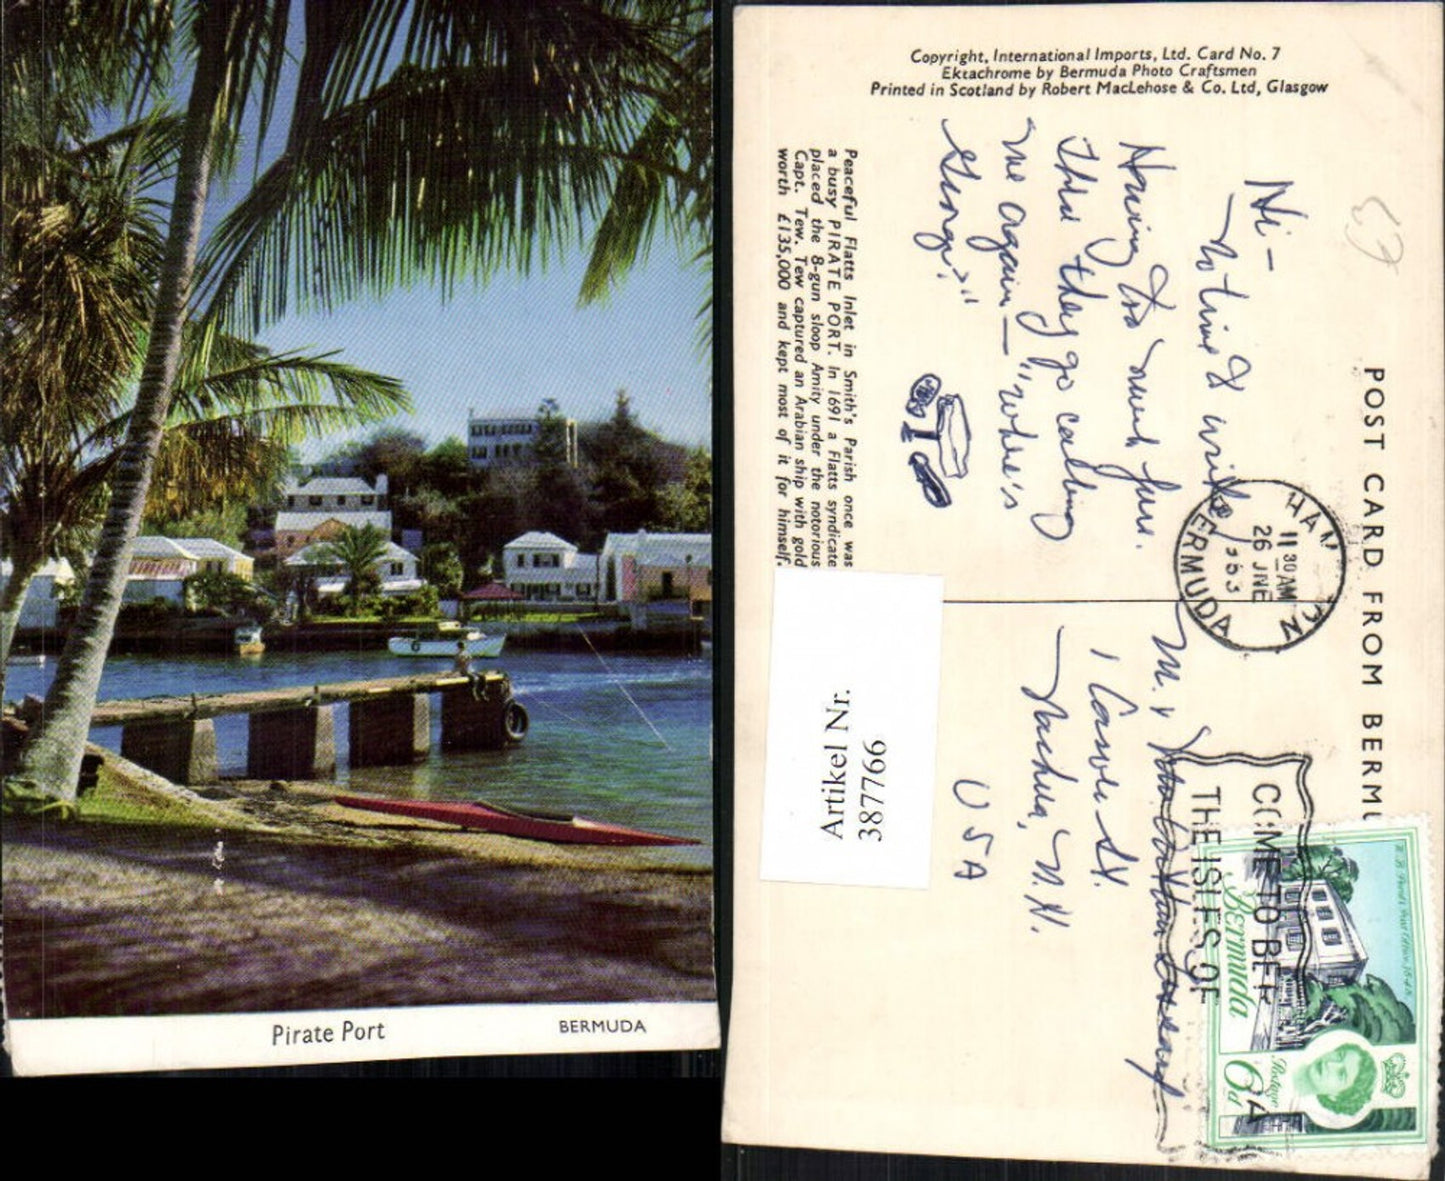 Pirate Port
BERMUDA
Copyright, International Imports, Ltd. Card No. 7
Ektachrome by Bermuda Photo Craftsmen
Printed in Scotland by Robert MacLehose & Co. Ltd, Glasgow
POST CARD FROM BERMU
Hi –
No time to write,
Having too much fun.
There they go calling
me again — "where's
George?"
Peaceful Flatts Inlet in Smith's Parish once was
a busy PIRATE PORT. In 1691 a Flatts syndicate
placed the 8-gun sloop Amity under the notorious
Capt. Tew. Tew captured an Arabian ship with gold
worth £135,000 and kept most of it for himself.
Artikel Nr.
387766
HAMILTON
11 30 AM
26 JNE
BERMUDA
COME TO BER
THE ISLES OF
A
Bermuda
Postage
6d
St.
Nashua, N.H.
USA